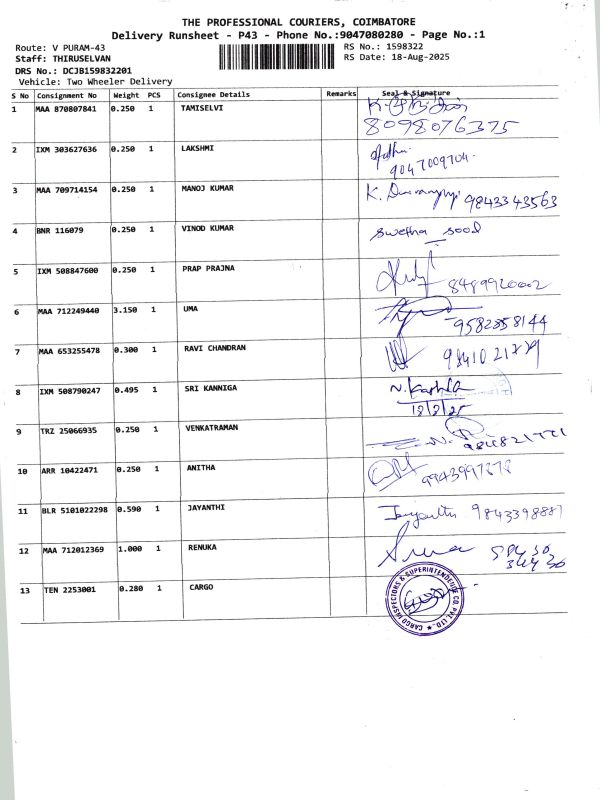 THE PROFESSIONAL COURIERS, COIMBATORE
Delivery Runsheet - P43 - Phone No.:9047080280 - Page No.:1
Route: V PURAM-43
RS No.: 1598322
Staff: THIRUSELVAN
RS Date: 18-Aug-2025
DRS No.: DCJB159832201
Vehicle: Two Wheeler Delivery
S No Consignment No Weight PCS Consignee Details Remarks Seal & Signature
1 MAA 870807841 0.250 1 TAMISELVI
8098076375
2 IXM 303627636 0.250 1 LAKSHMI
9047009704
3 MAA 709714154 0.250 1 MANOJ KUMAR K. 9843343563
4 BNR 116079 0.250 1 VINOD KUMAR Swetha Sood
5 IXM 508847600 0.250 1 PRAP PRAJNA
8489920002
6 MAA 712249440 3.150 1 UMA
9582858144
7 MAA 653255478 0.300 1 RAVI CHANDRAN
8 IXM 508790247 0.495 1 SRI KANNIGA N.
9 TRZ 25066935 0.250 1 VENKATRAMAN
10 ARR 10422471 0.250 1 ANITHA
11 BLR 5101022298 0.590 1 JAYANTHI Jayanthi
12 MAA 712012369 1.000 1 RENUKA
13 TEN 2253001 0.280 1 CARGO
CARGO INSPECTORS & SUPERINTENDENCE CO. PVT. LTD.